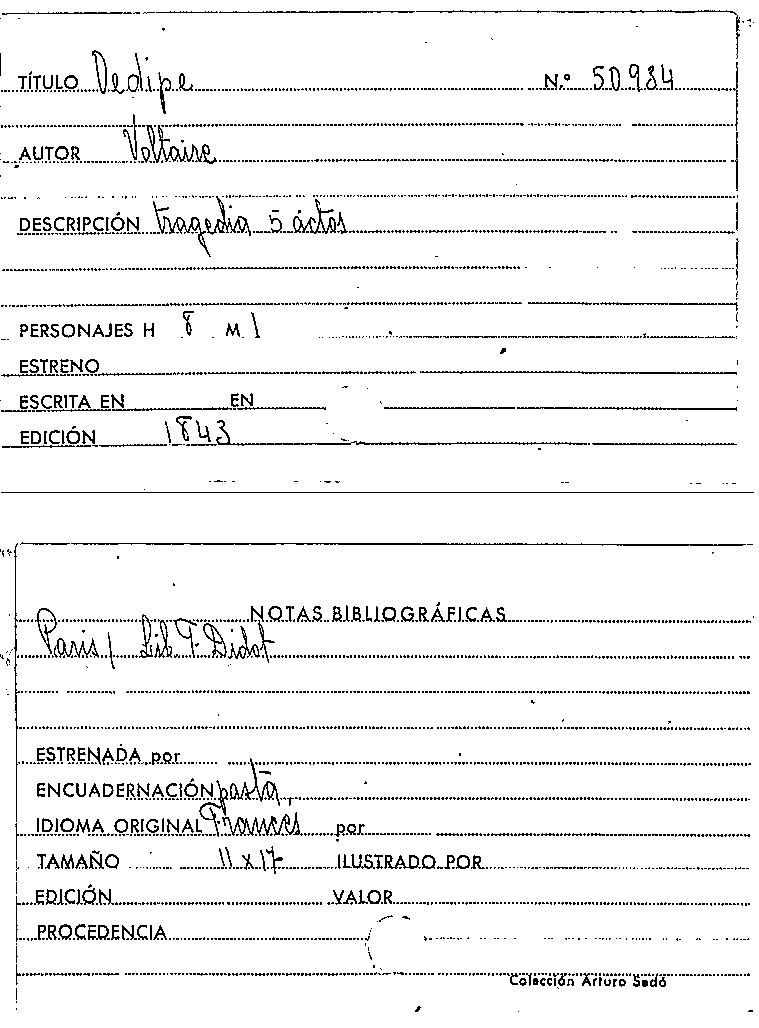 TÍTULO Oedipe N.º 50984
AUTOR Voltaire
DESCRIPCIÓN tragedia 5 áctos
PERSONAJES H 8 M 1
ESTRENO
ESCRITA EN EN
EDICIÓN 1843
NOTAS BIBLIOGRÁFICAS
Paris / Lib. F. Didot
ESTRENADA por
ENCUADERNACIÓN pasta
IDIOMA ORIGINAL Francés por
TAMAÑO 11 x 17 ILUSTRADO POR
EDICIÓN VALOR
PROCEDENCIA
Colección Arturo Sedó